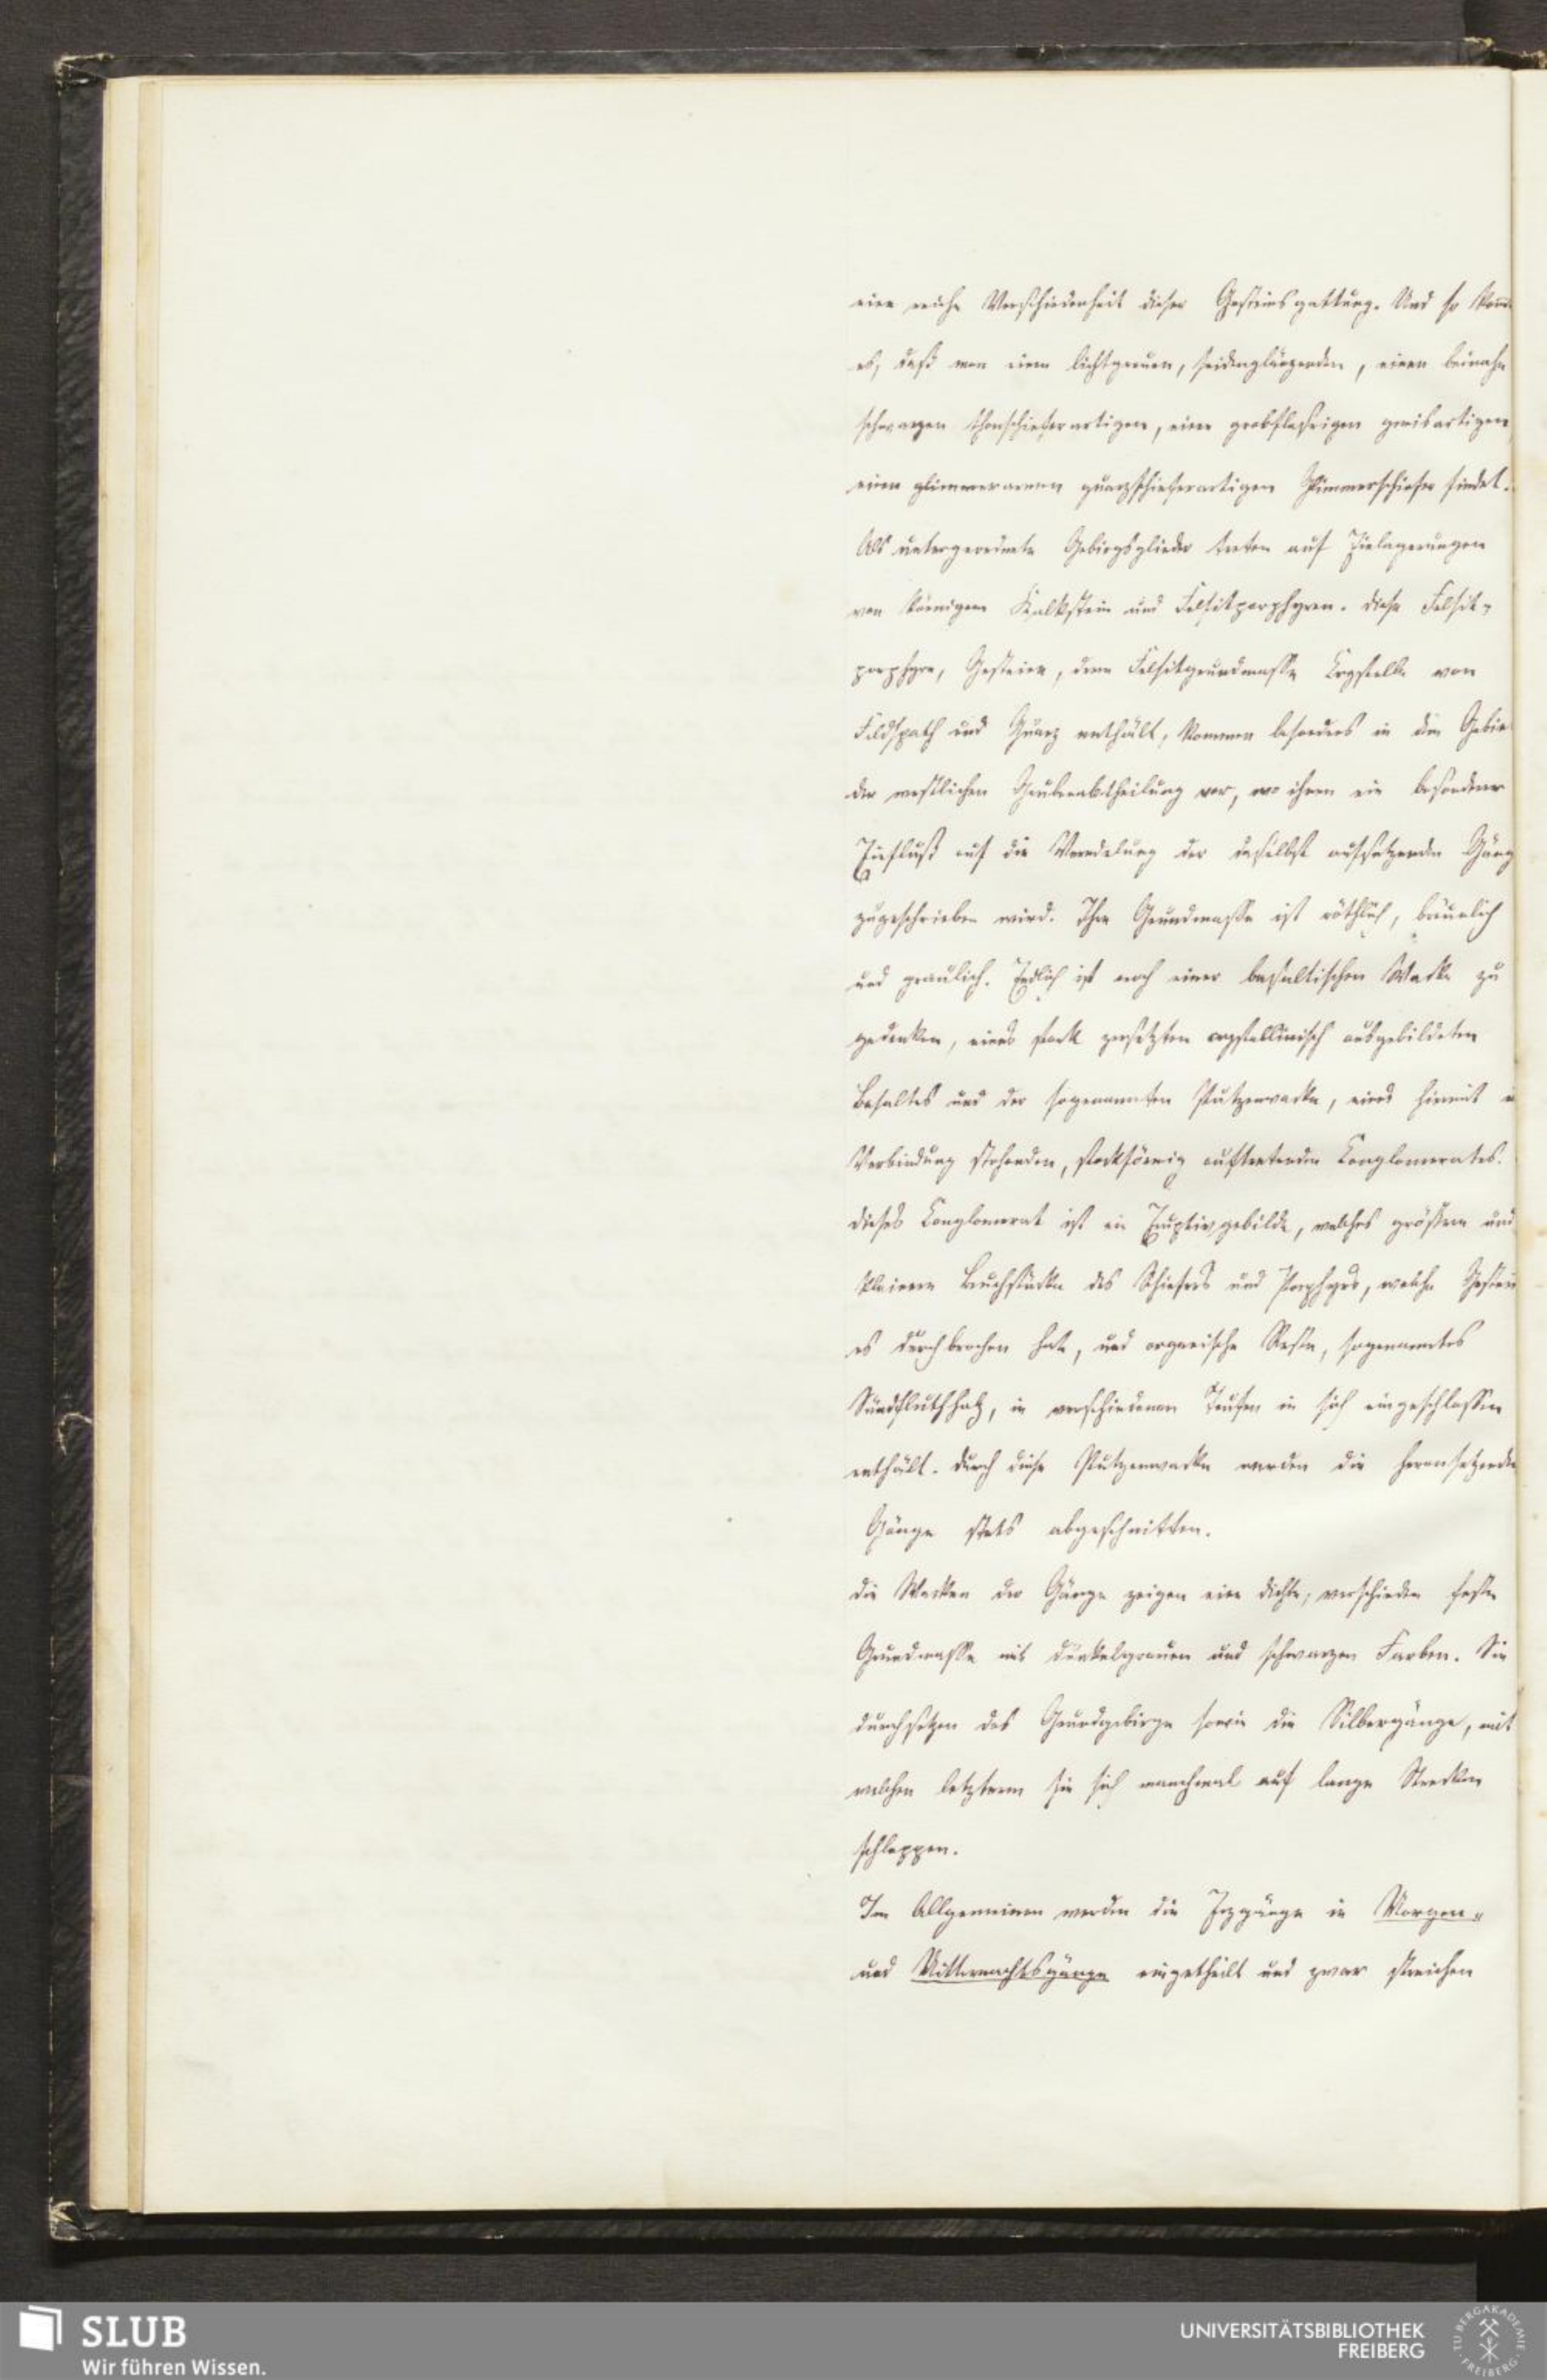 eine reiche Verschiedenheit dieser Gesteinsgattung. Und so kom̄t
es, daß man einen lichtgrauen, seidenglänzenden, einen beinahe
schwarzen thonschieferartigen, einen grobflasrigen gneisartigen
einen glimmerarmen quarzschieferartigen Glimmerschiefer findet.
Als untergeordnete Gebirgsglieder treten auf Einlagerungen
von körnigem Kalkstein und Felsitporphyren. Diese Felsit-
porphyre, Gesteine, deren Felsitgrundmasse Crystalle von
Feldspath und Quarz enthält, kommen besonders in dem Gebiet
der westlichen Grubenabtheilung vor, wo ihnen ein besonderer
Einfluß auf die Veredelung der daselbst aufsetzenden Gäng
zugeschrieben wird. Ihre Grundmasse ist röthlich, bräunlich
und graulich. Endlich ist noch einer basaltischen Wacke zu
gedenken, eines stark zersetzten crystallinisch ausgebildeten
Basaltes und der sogenannten Putzenwacke, eines hiermit i
Verbindung stehenden, stockförmig auftretenden Conglomerates.
Dieses Conglomerat ist ein Eruptivgebilde, welches größere und
kleinere Bruchstücke des Schiefers und Porphyrs, welche Gestein
es durchbrochen hat, und organische Reste, sogenanntes
Sündfluthholz, in verschiedenen Teufen in sich eingeschlossen
enthält. Durch diese Putzenwacke werden die heransetzenden
Gänge stets abgeschnitten.
Die Wacken der Gänge zeigen eine dichte, verschieden feste
Grundmasse mit dunkelgrauen und schwarzen Farben. Sie
durchsetzen das Grundgebirge sowie die Silbergänge, mit
welchen letzteren sie sich manchmal auf lange Strecken
schleppen.
Im Allgemeinen werden die Erzgänge in Morgen-
und Mitternachtsgänge eingetheilt und zwar streichen
SLUB
Wir führen Wissen.
UNIVERSITÄTSBIBLIOTHEK
FREIBERG
TU BERGAKADEMIE FREIBERG